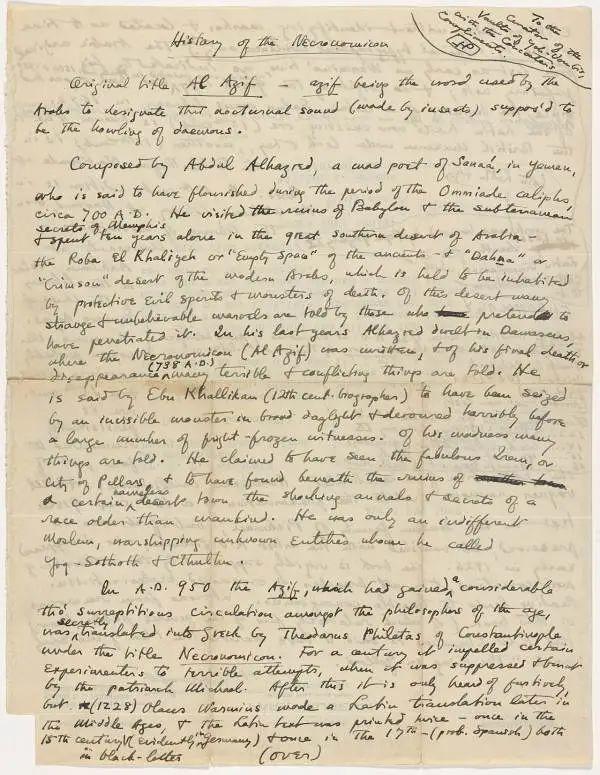 To the
Curator of the
Vaults of Yoh-Vombis,
with the Concoctor's
Compliments.
HP
History of the Necronomicon
Original title Al Azif — azif being the word used by the
Arabs to designate that nocturnal sound (made by insects) suppos'd to
be the howling of daemons.
Composed by Abdul Alhazred, a mad poet of Sanaá, in Yemen,
who is said to have flourished during the period of the Ommiade caliphs,
circa 700 A.D. He visited the ruins of Babylon & the subterranean
secrets of Memphis
& spent ten years alone in the great southern desert of Arabia —
the Roba El Khaliyeh or "Empty Space" of the ancients — & "Dahna" or
"Crimson" desert of the modern Arabs, which is held to be inhabited
by protective evil spirits & monsters of death. Of this desert many
strange & unbelievable marvels are told by those who pretend to
have penetrated it. In his last years Alhazred dwelt in Damascus,
where the Necronomicon (Al Azif) was written, & of his final death or
disappearance (738 A.D.) many terrible & conflicting things are told. He
is said by Ebn Khallikan (12th cent. biographer) to have been seized
by an invisible monster in broad daylight & devoured horribly before
a large number of fright-frozen witnesses. Of his madness many
things are told. He claimed to have seen the fabulous Irem, or
City of Pillars, & to have found beneath the ruins of
a certain nameless desert town the shocking annals & secrets of a
race older than mankind. He was only an indifferent
Moslem, worshipping unknown Entities whom he called
Yog-Sothoth & Cthulhu.
In A.D. 950 the Azif, which had gained a considerable
tho' surreptitious circulation amongst the philosophers of the age,
was secretly translated into Greek by Theodorus Philetas of Constantinople
under the title Necronomicon. For a century it impelled certain
experimenters to terrible attempts, when it was suppressed & burnt
by the patriarch Michael. After this it is only heard of furtively,
but (1228) Olaus Wormius made a Latin translation later in
the Middle Ages, & the Latin text was printed twice — once in the
15th century (evidently in Germany) & once in the 17th — (prob. Spanish) both
in black-letter (over)